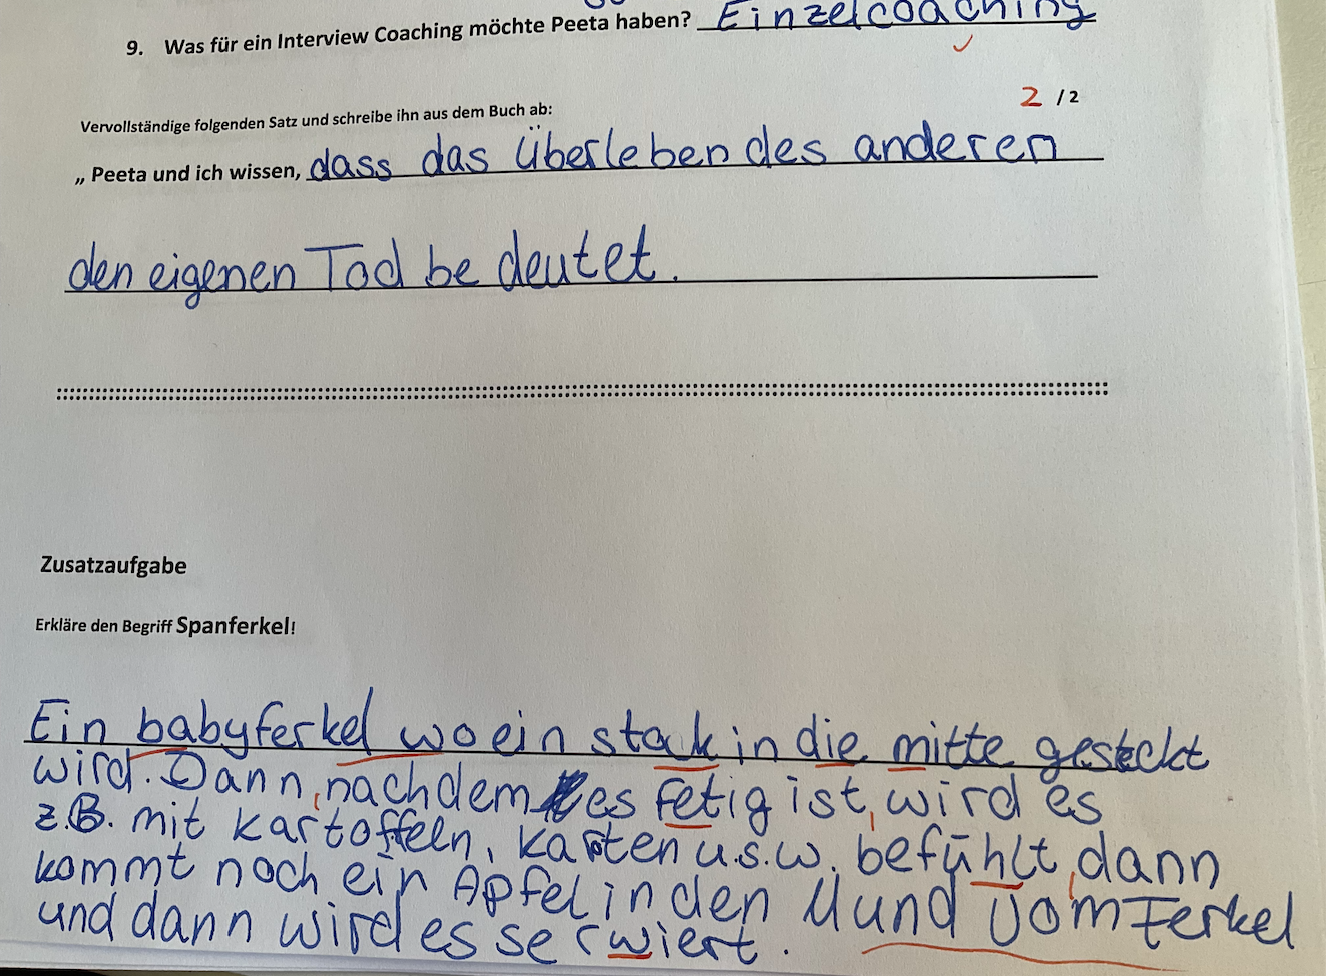 9. Was für ein Interview Coaching möchte Peeta haben? Einzelcoaching
2 /2
Vervollständige folgenden Satz und schreibe ihn aus dem Buch ab:
„ Peeta und ich wissen, dass das überleben des anderen
den eigenen Tod bedeutet.
Zusatzaufgabe
Erkläre den Begriff Spanferkel!
Ein babyferkel wo ein stock in die mitte gesteckt
wird. Dann, nachdem es fetig ist, wird es
z.B. mit Kartoffeln, u.s.w. befühlt, dann
kommt noch ein Apfel in den Mund vom Ferkel
und dann wird es serwiert.